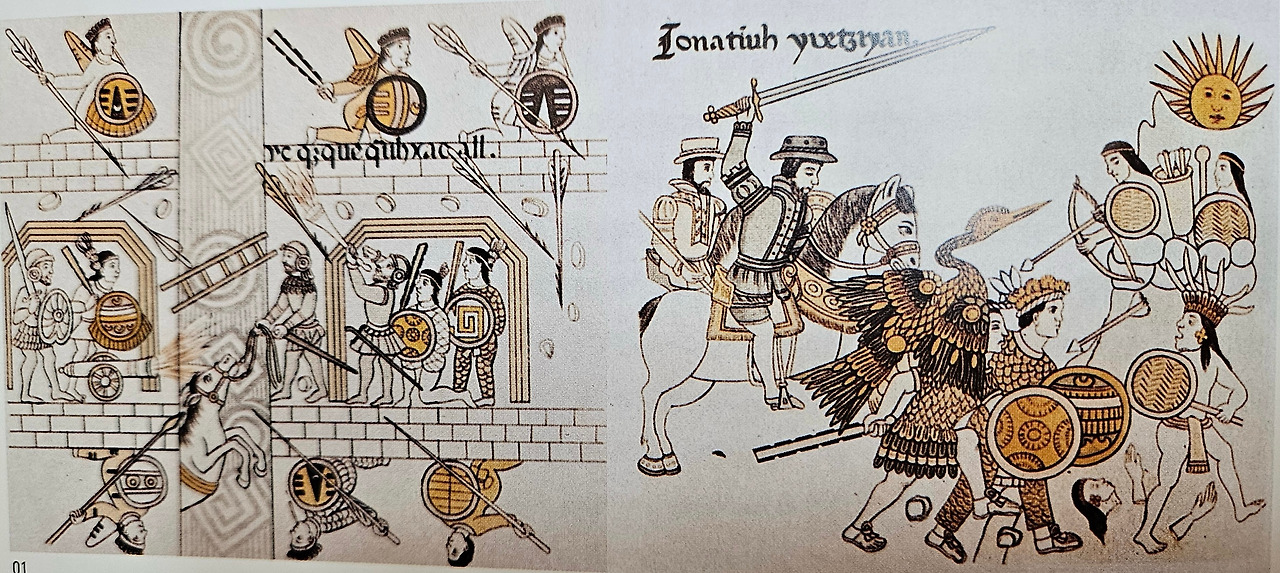 yc q;quequihxacall.
Tonatiuh yvetzyan.
01